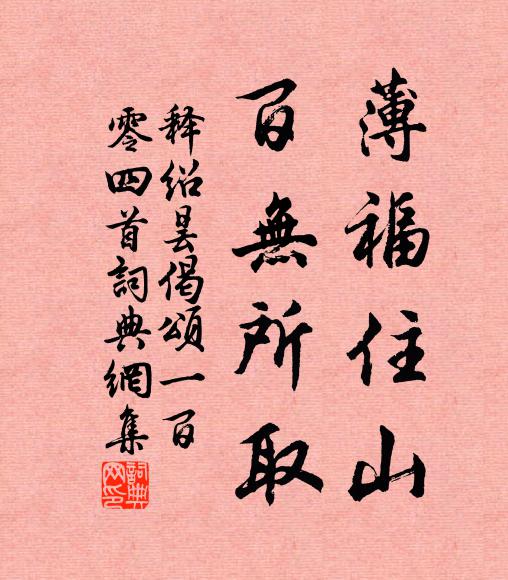 薄福住山
百無所取
釋紹曇偈頌一百
零四首詞典網集
詞典
网印